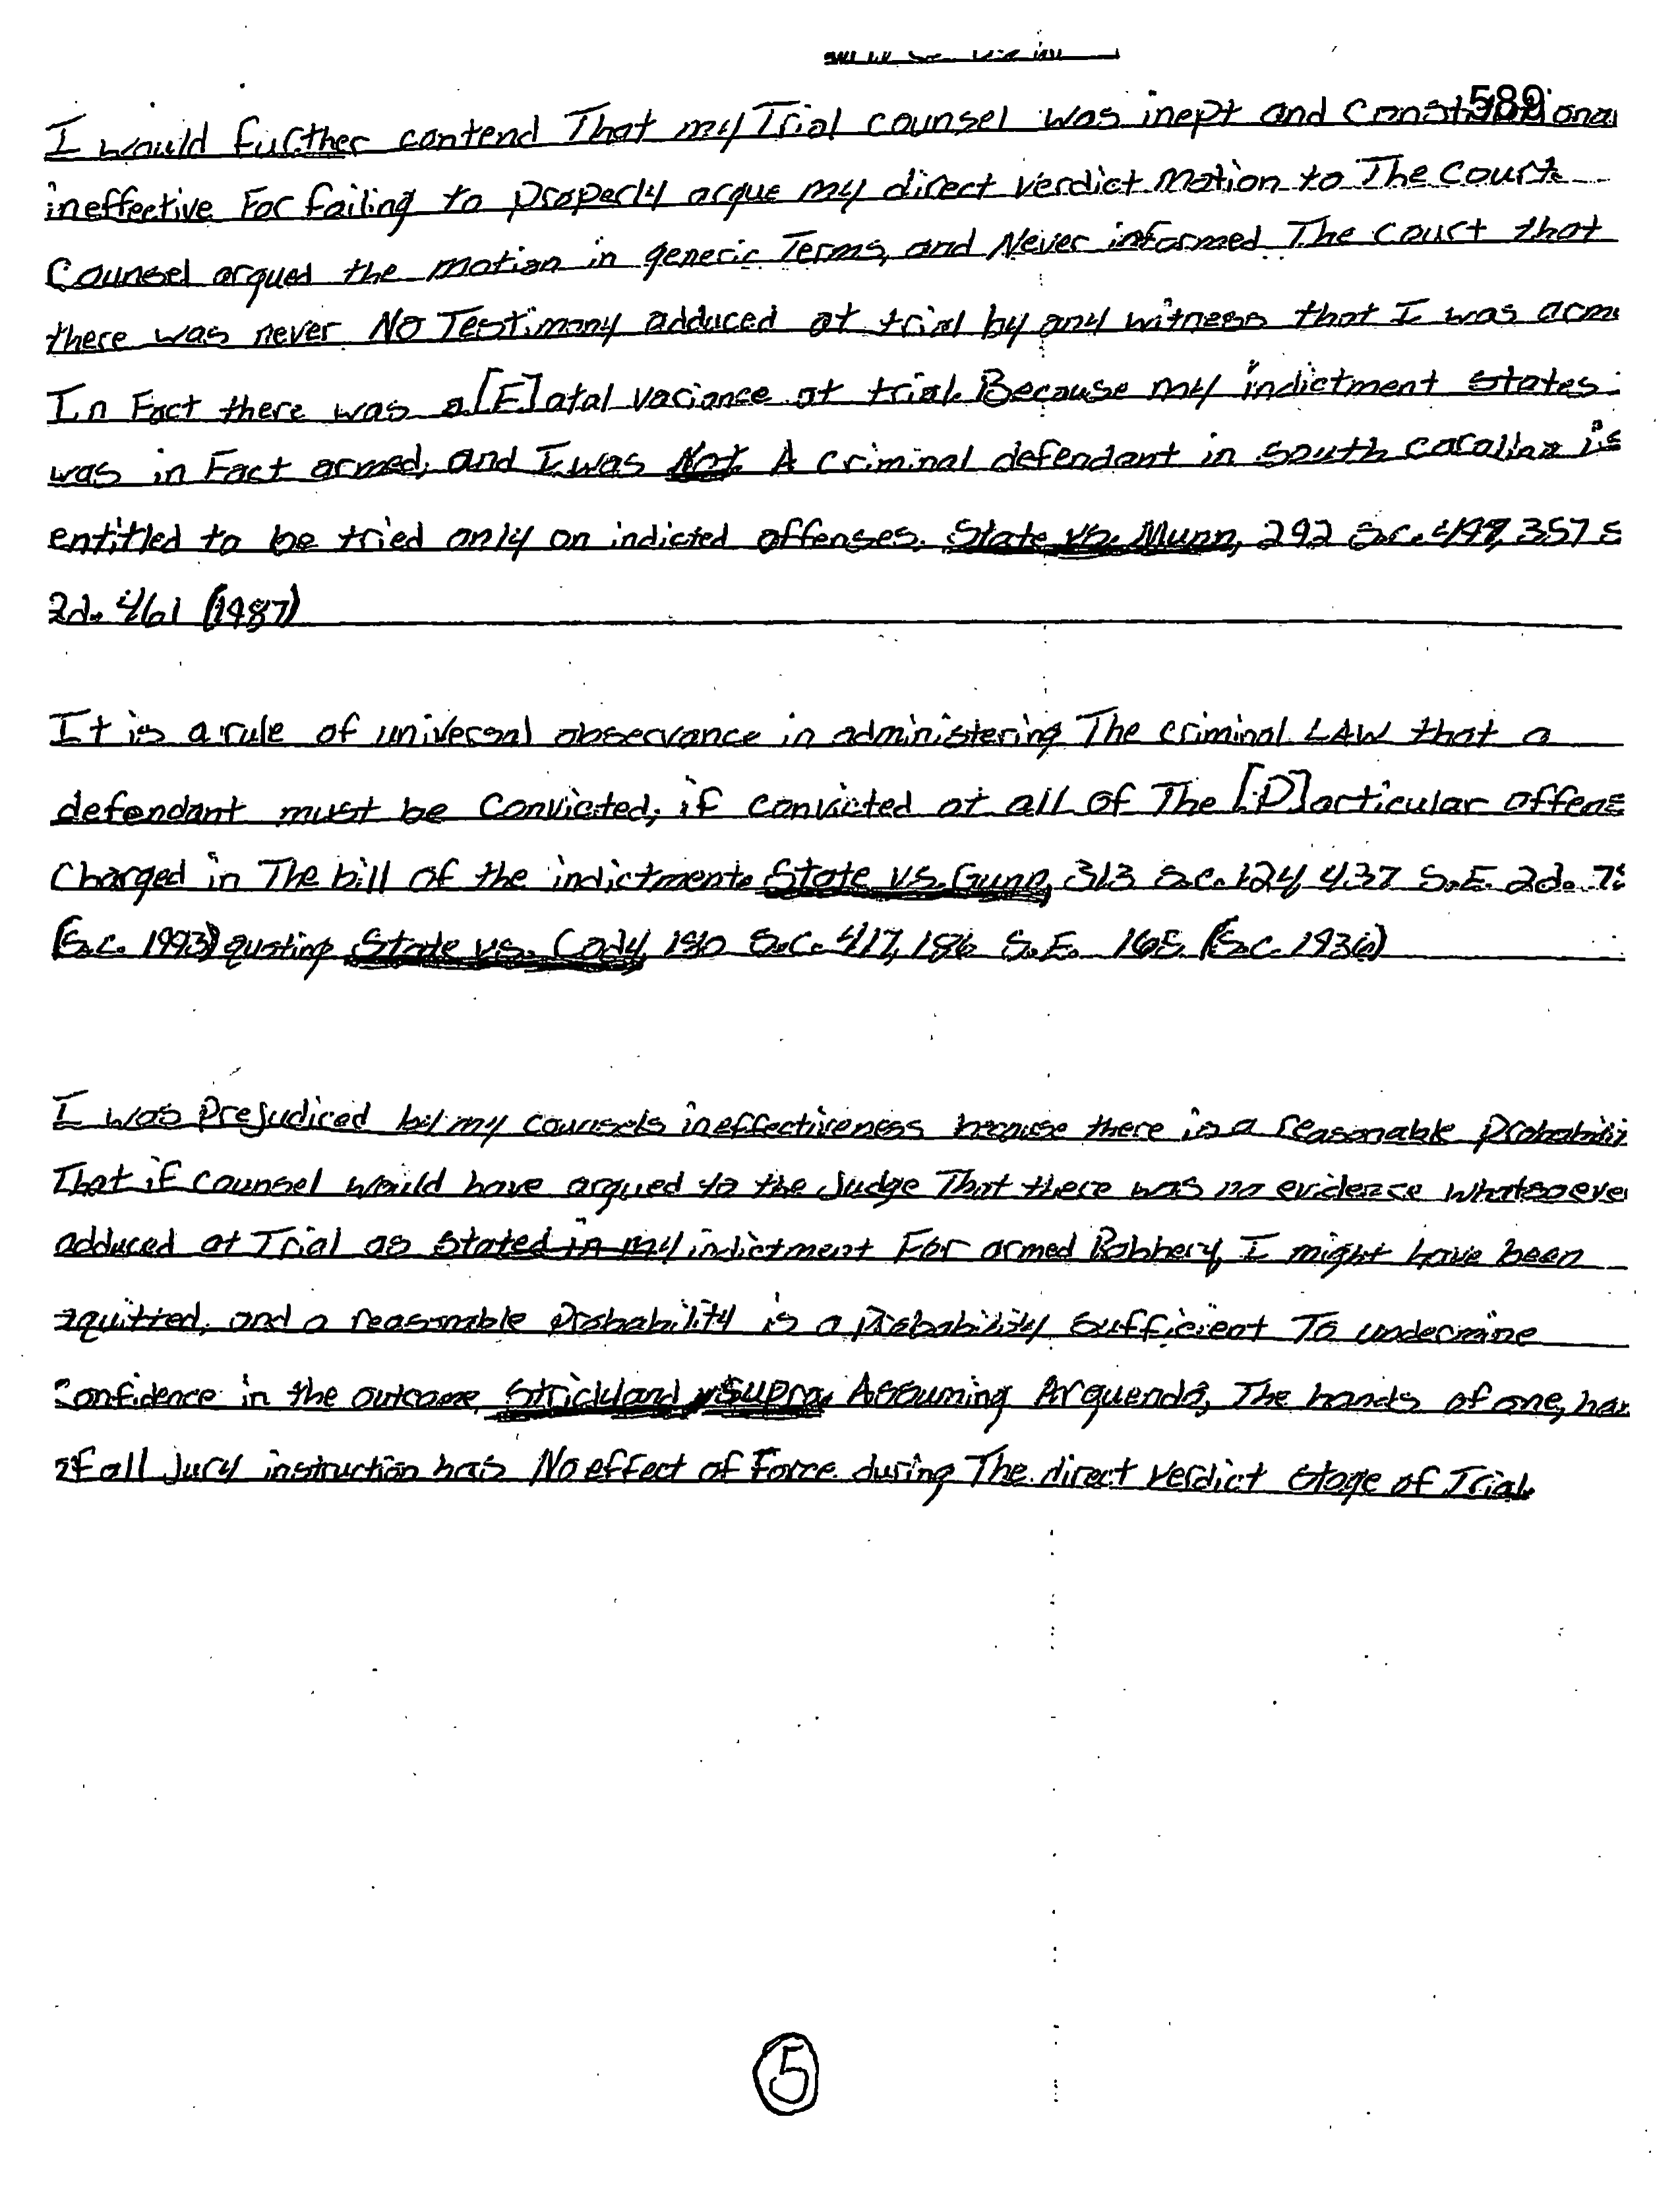 589
I would further contend That my Trial counsel was inept and
ineffective For failing to properly argue my direct verdict Motion to The Court.
Counsel argued the motion in generic Terms, and Never informed The Court that
there was never No Testimony adduced at trial by any witness that I was arm
In Fact there was a [F]atal variance at trial. Because my indictment states
was in Fact armed, and I was Not. A criminal defendant in South Carolina is
entitled to be tried only on indicted offenses. State vs. Munn, 292 S.C. 497, 357 S
2d. 461 (1987)
It is a rule of universal observance in administering The criminal LAW that a
defendant must be Convicted, if convicted at all of The [P]articular offens
Charged in The bill of the indictment. State vs. Gunn, 313 S.C. 124, 437 S.E. 2d. 75
(S.C. 1993) quoting State vs. Cody, 180 S.C. 417, 186 S.E. 165 (S.C. 1936)
I was Prejudiced by my counsels ineffectiveness because there is a reasonable Probabili
That if counsel would have argued to the Judge That there was no evidence whatsoeve
adduced at Trial as stated in my indictment For armed Robbery, I might have been
aquitted, and a reasonable Probability is a probability Sufficient To undermine
confidence in the outcome, Strickland, Supra, Assuming Arguendo, The hands of one, han
of all Jury instruction has No effect of Force during The direct verdict stage of Trial.
5